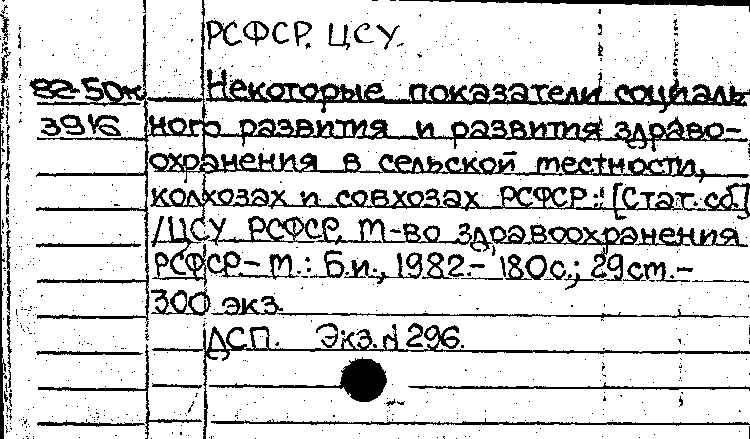 РСФСР. ЦСУ.
82-50ж Некоторые показатели социаль
3916 ного развития и развития здраво-
охранения в сельской местности,
колхозах и совхозах РСФСР: [Стат. сб.]
/ЦСУ РСФСР, М-во здравоохранения
РСФСР.- М.: Б.и., 1982.- 180с.; 29см.-
300 экз.
ДСП. Экз.N 296.